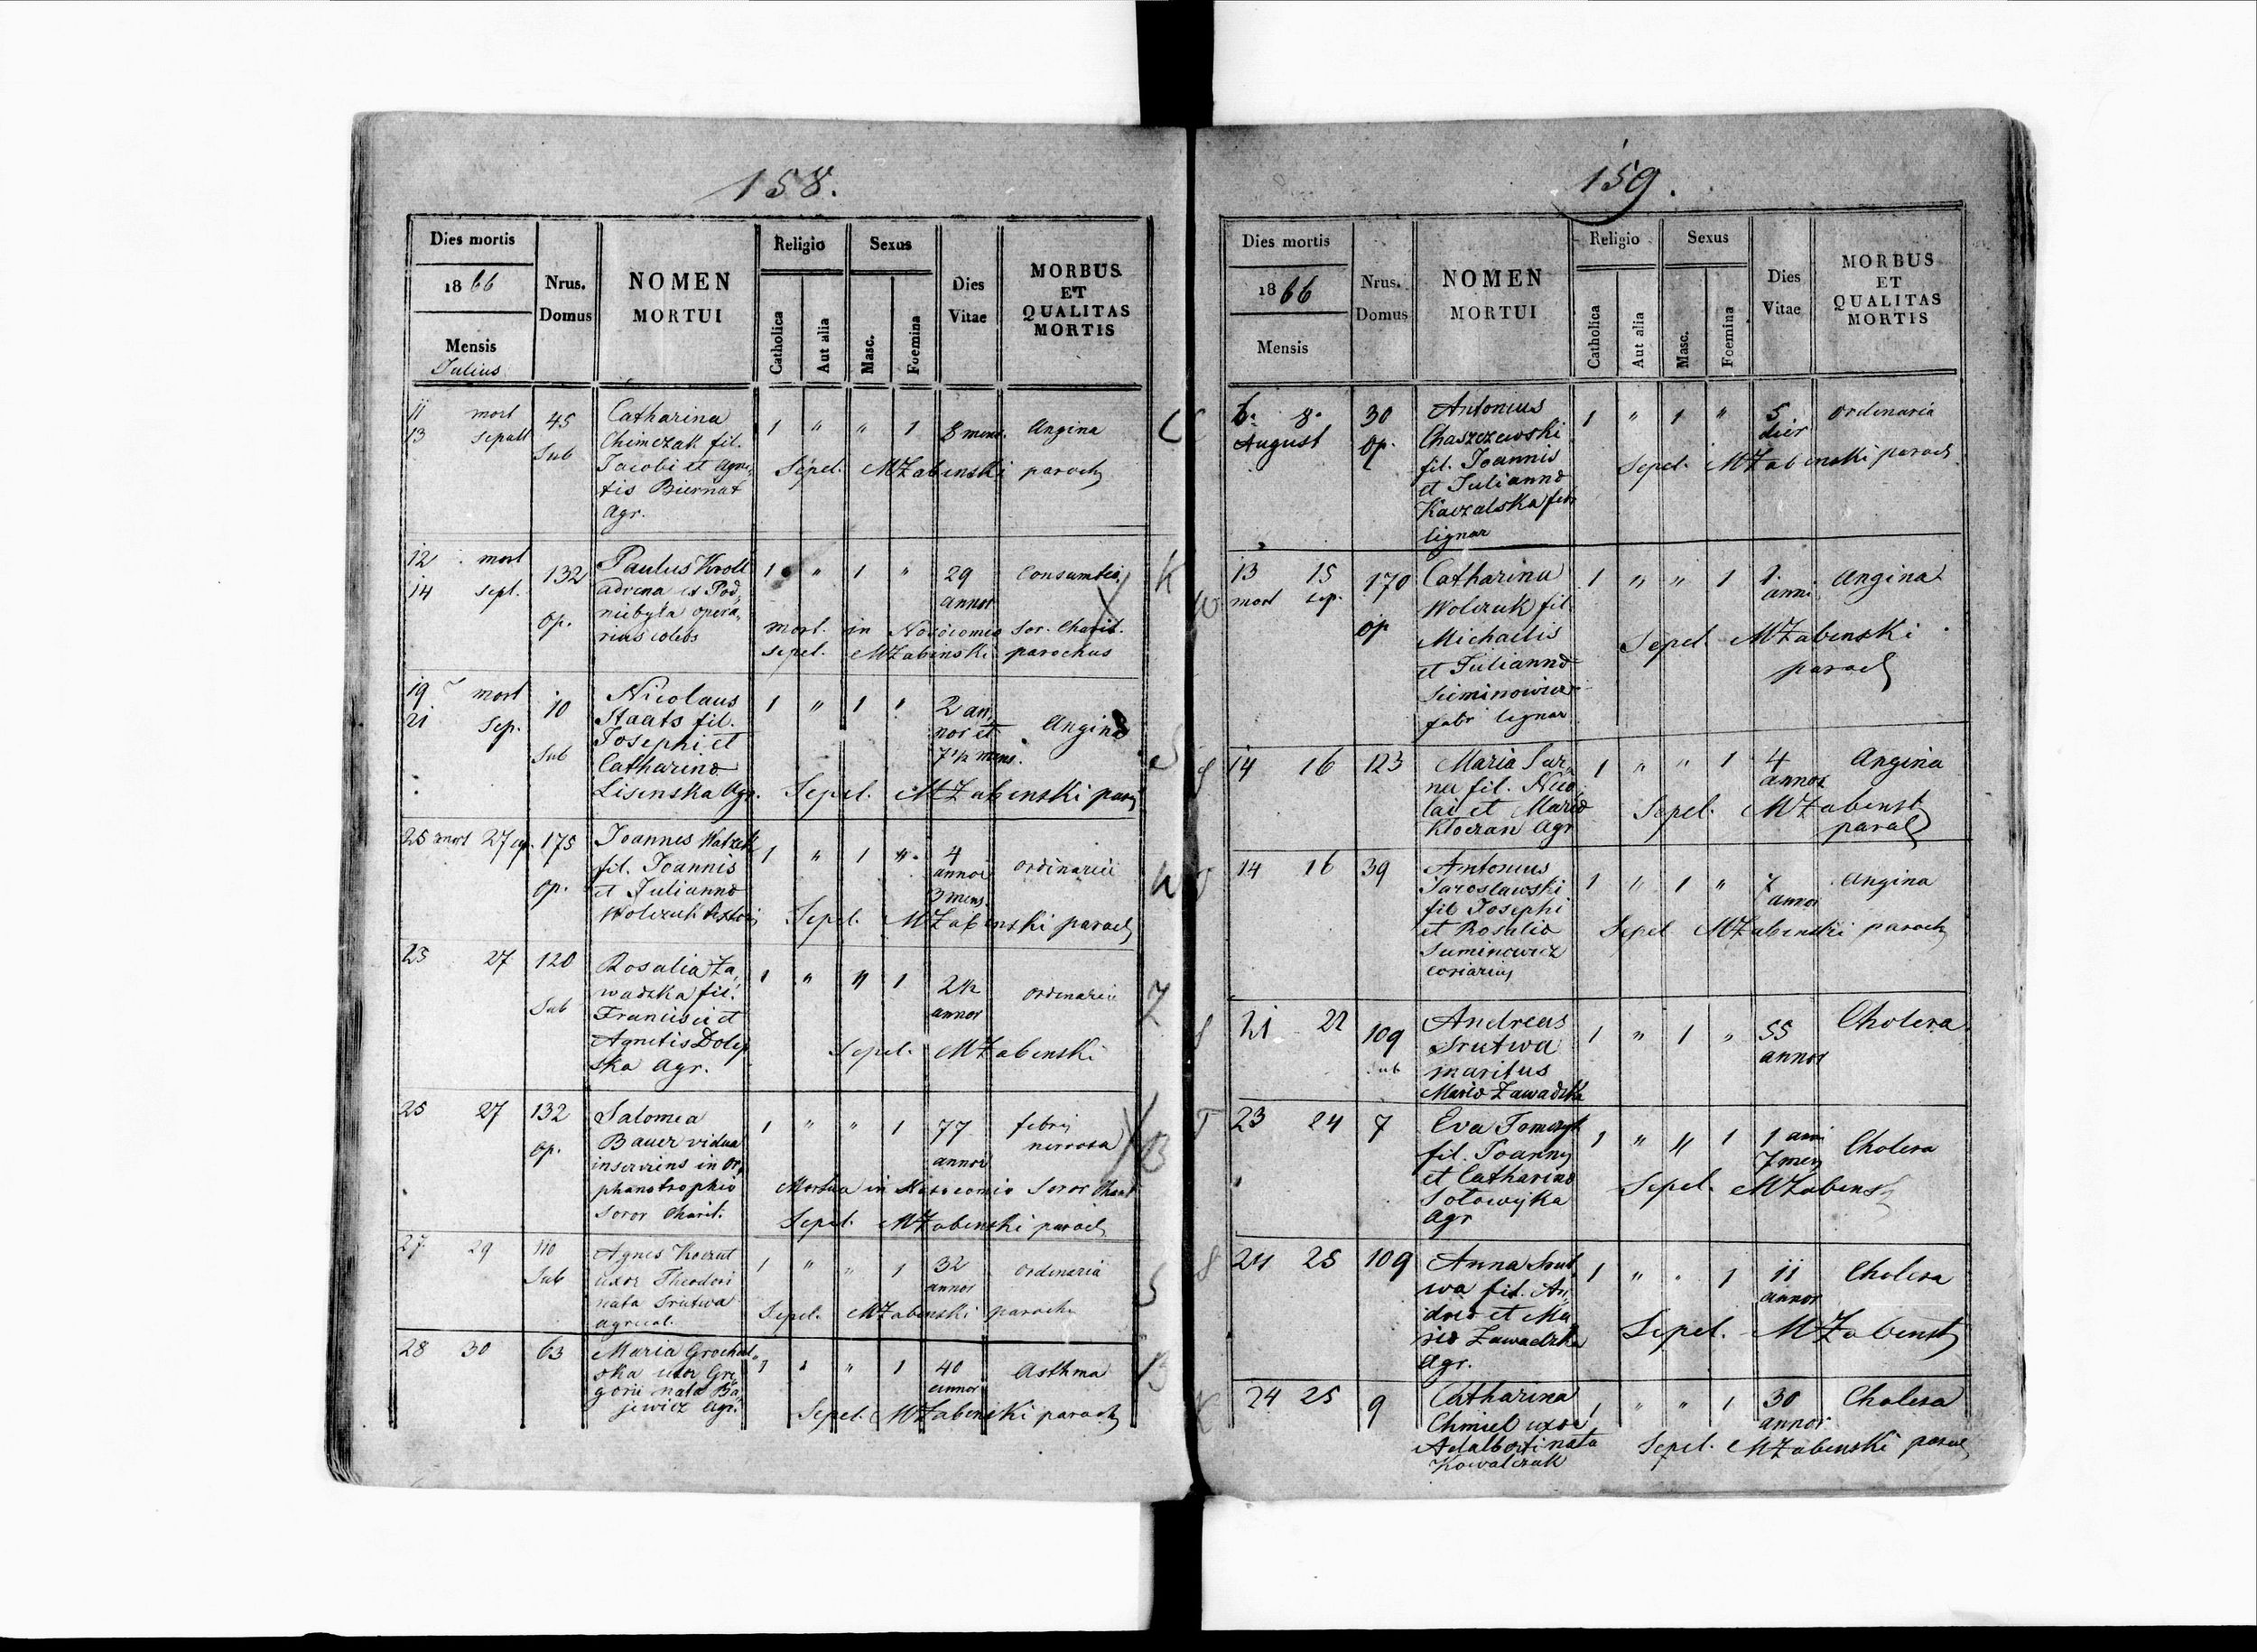 158.
Dies mortis
1866
Mensis
Julius
Nrus.
Domus
NOMEN
MORTUI
Religio
Catholica
Aut alia
Sexus
Masc.
Foemina
Dies
Vitae
MORBUS
ET
QUALITAS
MORTIS
11 mort
13 sepult
45
Sub
Catharina
Chimczak fil.
Jacobi et Agne,
tis Biernat
Agr.
1 " " 1 8 mens. Angina
Sepel. MZabinski paroch
C
12 mort
14 sept.
132
Op.
Paulus Kroll
advena ex Pod,
niebyła opera,
rius colebs
1 " 1 " 29
annor
Consumtio
mort. in Nosocomio Sor. Charit.
sepel. MZabinski parochus
K
19 mort
21 Sep.
10
Sub
Nicolaus
Staats fil.
Josephi et
Catharina
Lisinska Agr.
1 " 1 "
2 an,
nor et
7 1/2 mens.
Angina
Sepel. MZabinski par
S
25 mort 27 sep. 175
Op.
Joannes
fil. Joannis
et Julianna
Wolczuk
1 " 1 " 4
annor
3 mens.
ordinaria
Sepel. MZabinski paroch
W
25 27 120
Sub
Rosalia Za,
wadzka fil.
Francisci et
Agnetis Dolej
ska Agr.
1 " " 1 2 1/2
annor
ordinaria
Sepel. MZabinski
Z
25 27 132
Op.
Salomea
Bauer vidua
inserviens in Or,
phanotrophio
Soror Charit.
1 " " 1 77
annor
febris
nervosa
Mortua in Nosocomio Soror Charit
Sepel. MZabinski paroch
B
27 29 110
Sub
Agnes Koczut
uxor Theodori
nata Srutwa
agricol.
1 " " 1 32
annor
ordinaria
Sepel. MZabinski paroch
S
28 30 63
Maria Grochol,
ska uxor Gre
gorii nata Ba,
jewicz Agr.
1 " " 1 40
annor
Asthma
Sepel. MZabinski paroch
B
159.
Dies mortis
1866
Mensis
Nrus.
Domus
NOMEN
MORTUI
Religio
Catholica
Aut alia
Sexus
Masc.
Foemina
Dies
Vitae
MORBUS
ET
QUALITAS
MORTIS
C
6. 8.
August
30
Op.
Antonius
Chaszczewski
fil. Joannis
et Julianna
Kaczalska fabr
lignar
1 " 1 " 5
dier
ordinaria
Sepel. MZabinski paroch
W
13 15
mort sep.
170
Op
Catharina
Wolczuk fil.
Michaelis
et Julianna
Siminowicz
fabr lignar
1 " " 1 1.
anni
Angina
Sepel MZabinski
paroch
S
14 16 123
Maria Sar,
na fil. Nico,
lai et Maria
Kloczan Agr
1 " " 1 4
annor
Angina
Sepel. MZabinsk
paroch
J
14 16 39
Antonius
Jaroslawski
fil Josephi
et Rosalia
Suminowicz
coriarius
1 " 1 " 7
annor
Angina
Sepel MZabinski paroch
S
21 22 109
Sub
Andreas
Srutwa
maritus
Maria Zawadzka
1 " 1 " 55
annor
Cholera
T
23 24 7
Eva Tomczyk
fil. Joannis
et Catharina
Sotowijka
Agr
1 " " 1 1 anni
7 mens
Cholera
Sepel. MZabinsk
S
24 25 109
Anna Srut,
wa fil. An,
drea et Ma
ria Zawadzka
Agr.
1 " " 1 11
annor
Cholera
Sepel. MZabinsk
K
24 25 9
Catharina
Chmiel uxor
Adalberti nata
Kowalczuk
1 " " 1 30
annor
Cholera
Sepel. MZabinski paroch